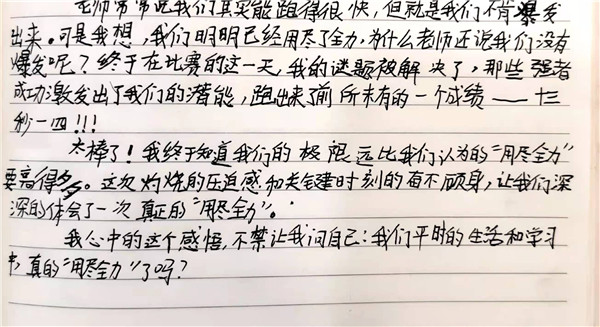 老师常常说我们其实能跑得很快，但就是我们不肯爆发
出来。可是我想，我们明明已经用尽了全力，为什么老师还说我们没有
爆发呢？终于在比赛的这一天，我的谜题被解决了，那些强者
成功激发出了我们的潜能，跑出来了前所未有的一个成绩——十三
秒一四！！！
太棒了！我终于知道我们的极限远比我们认为的“用尽全力”
要高得多。这次灼烧的压迫感和关键时刻的奋不顾身，让我们深
深的体会了一次真正的“用尽全力”。
我心中的这个感悟，不禁让我问自己：我们平时的生活和学习
中，真的“用尽全力”了吗？